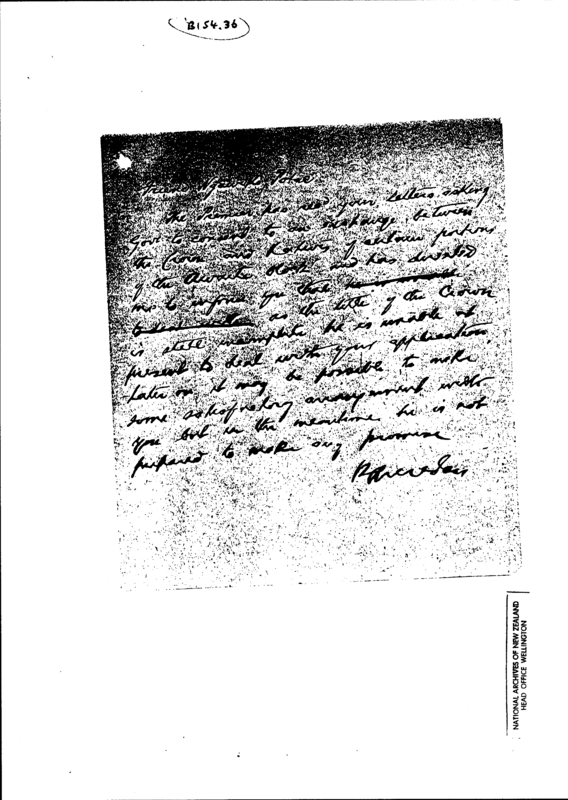 B154.36
The Premier has read your letters asking
Govt to consent to an exchange between
the Crown and Natives of certain portions
of the Block and has directed
me to inform you that
as the title of the Crown
is still incomplete he is unable at
present to deal with your application.
Later on it may be possible to make
some satisfactory arrangement with
you but in the meantime he is not
prepared to make any promise
NATIONAL ARCHIVES OF NEW ZEALAND
HEAD OFFICE WELLINGTON